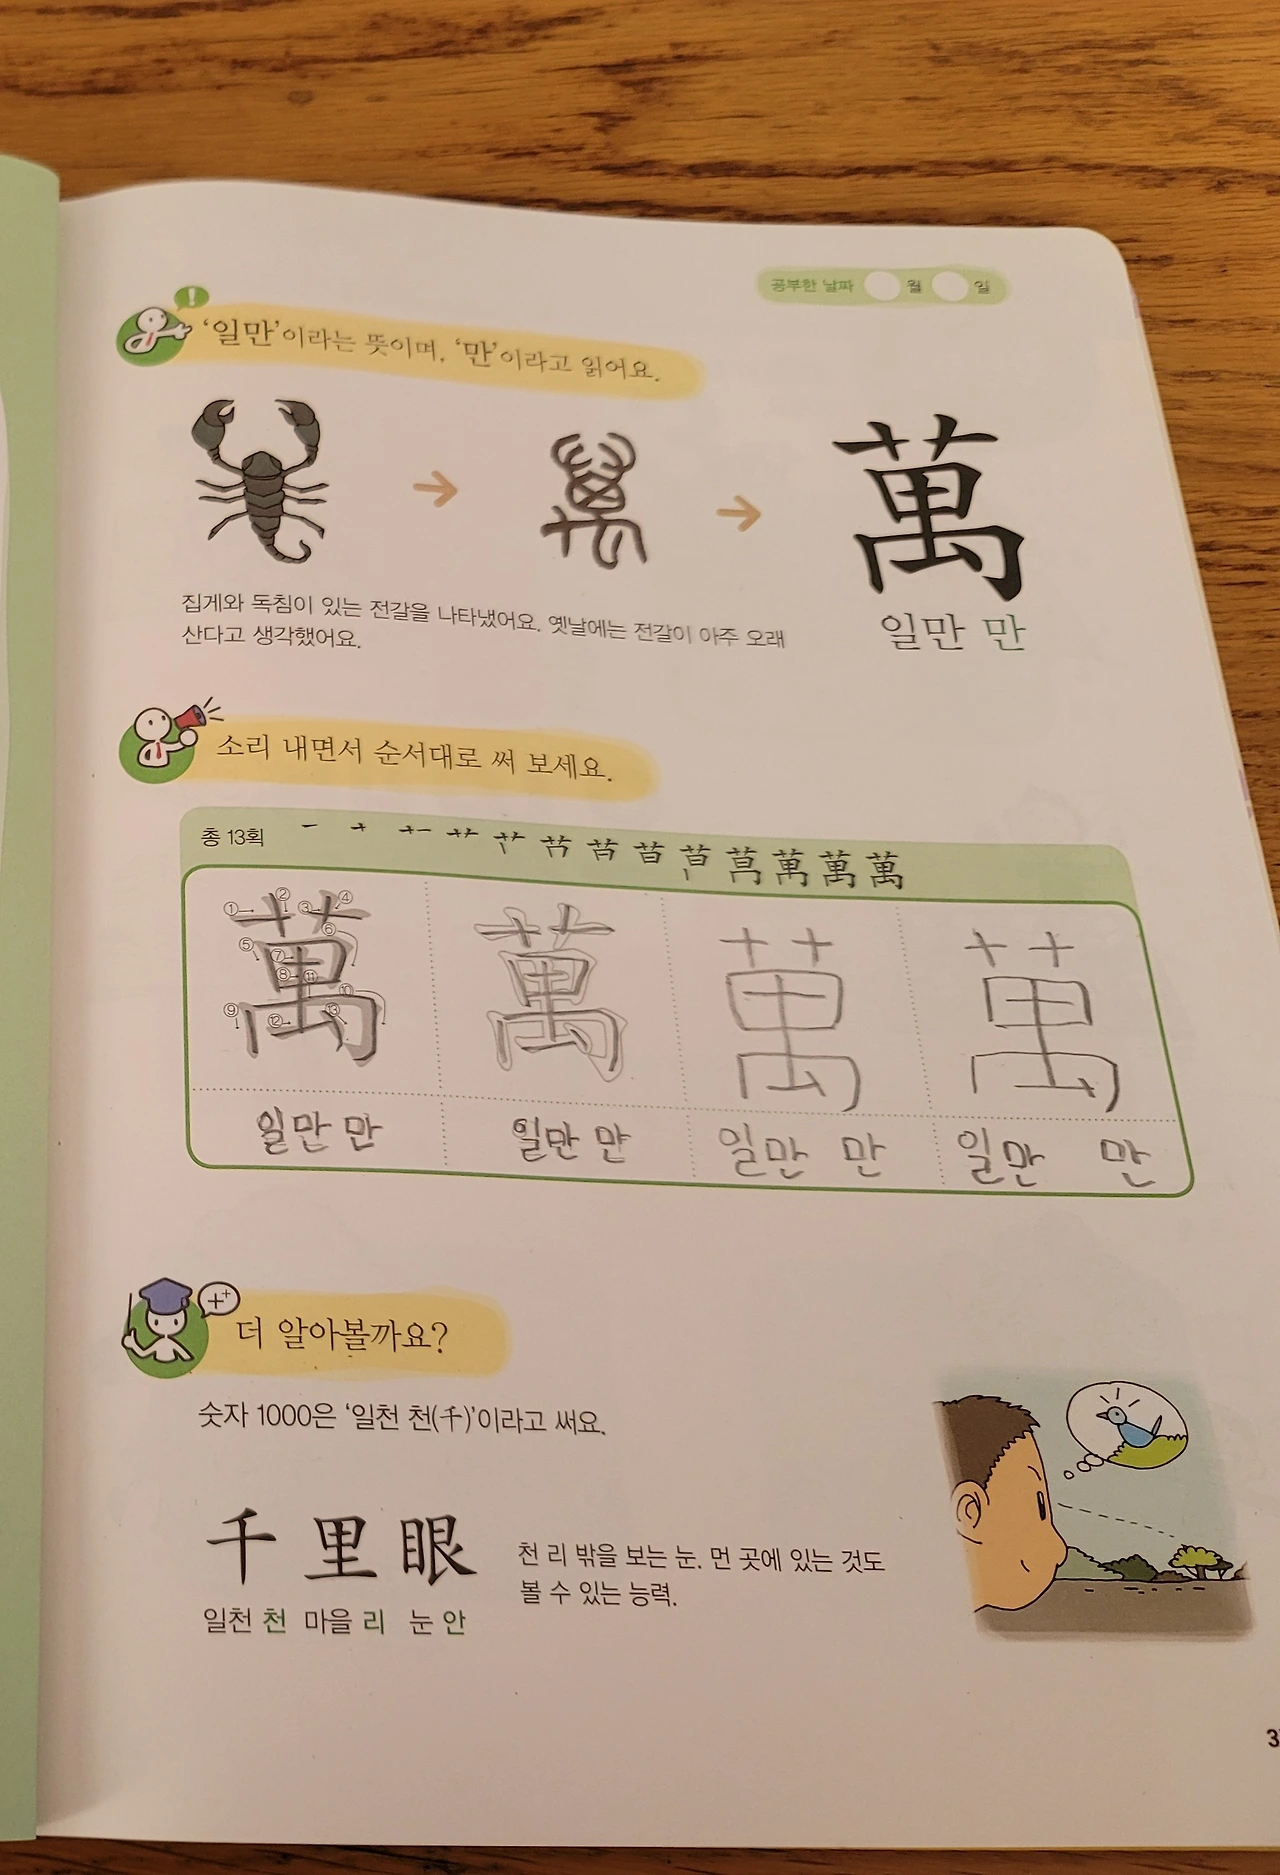 공부한 날짜 월 일
'일만'이라는 뜻이며, '만'이라고 읽어요.
萬
일만 만
집게와 독침이 있는 전갈을 나타냈어요. 옛날에는 전갈이 아주 오래
산다고 생각했어요.
소리 내면서 순서대로 써 보세요.
총 13획
① ② ③ ④ ⑤ ⑥ ⑦ ⑧ ⑨ ⑩ ⑪ ⑫ ⑬
萬 萬 萬 萬
일만 만 일만 만 일만 만 일만 만
더 알아볼까요?
숫자 1000은 '일천 천(千)'이라고 써요.
千 里 眼
일천 천 마을 리 눈 안
천 리 밖을 보는 눈. 먼 곳에 있는 것도
볼 수 있는 능력.